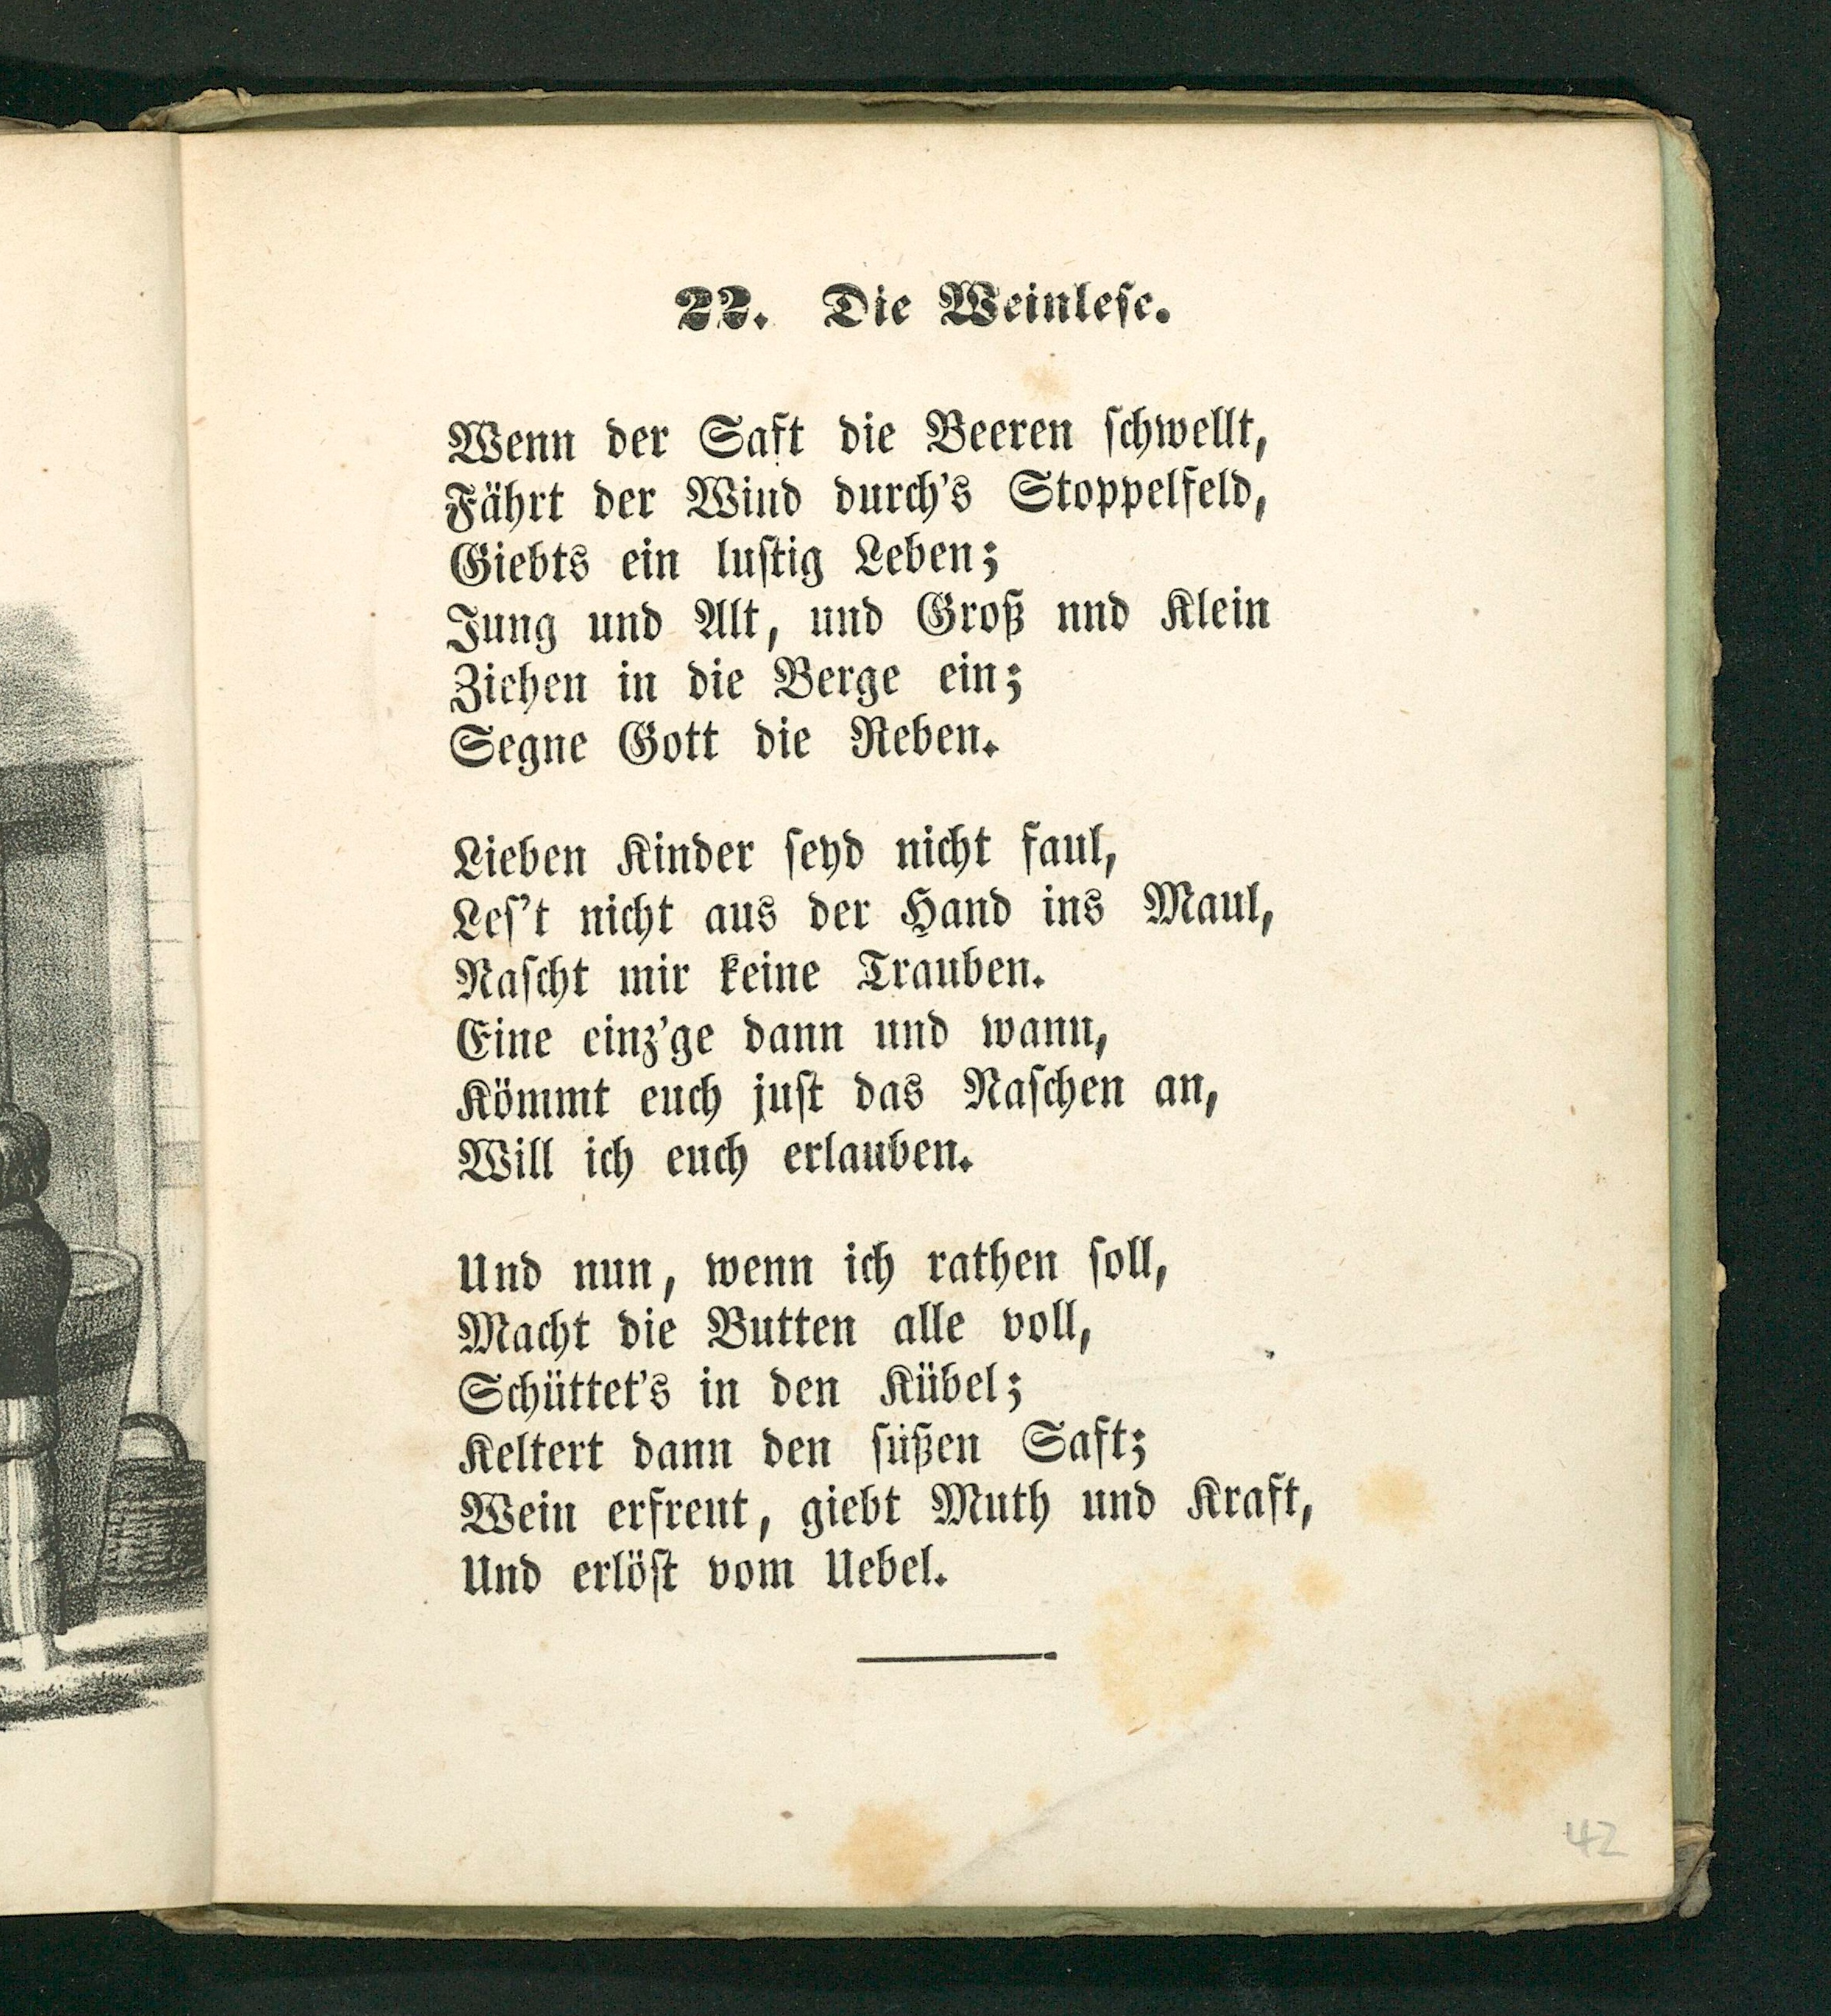 22. Die Weinlese.
Wenn der Saft die Beeren schwellt,
Fährt der Wind durch's Stoppelfeld,
Giebts ein lustig Leben;
Jung und Alt, und Groß nnd Klein
Ziehen in die Berge ein;
Segne Gott die Reben.
Lieben Kinder seyd nicht faul,
Les't nicht aus der Hand ins Maul,
Nascht mir keine Trauben.
Eine einz'ge dann und wann,
Kömmt euch just das Naschen an,
Will ich euch erlauben.
Und nun, wenn ich rathen soll,
Macht die Butten alle voll,
Schüttet's in den Kübel;
Keltert dann den süßen Saft;
Wein erfreut, giebt Muth und Kraft,
Und erlöst vom Uebel.
42